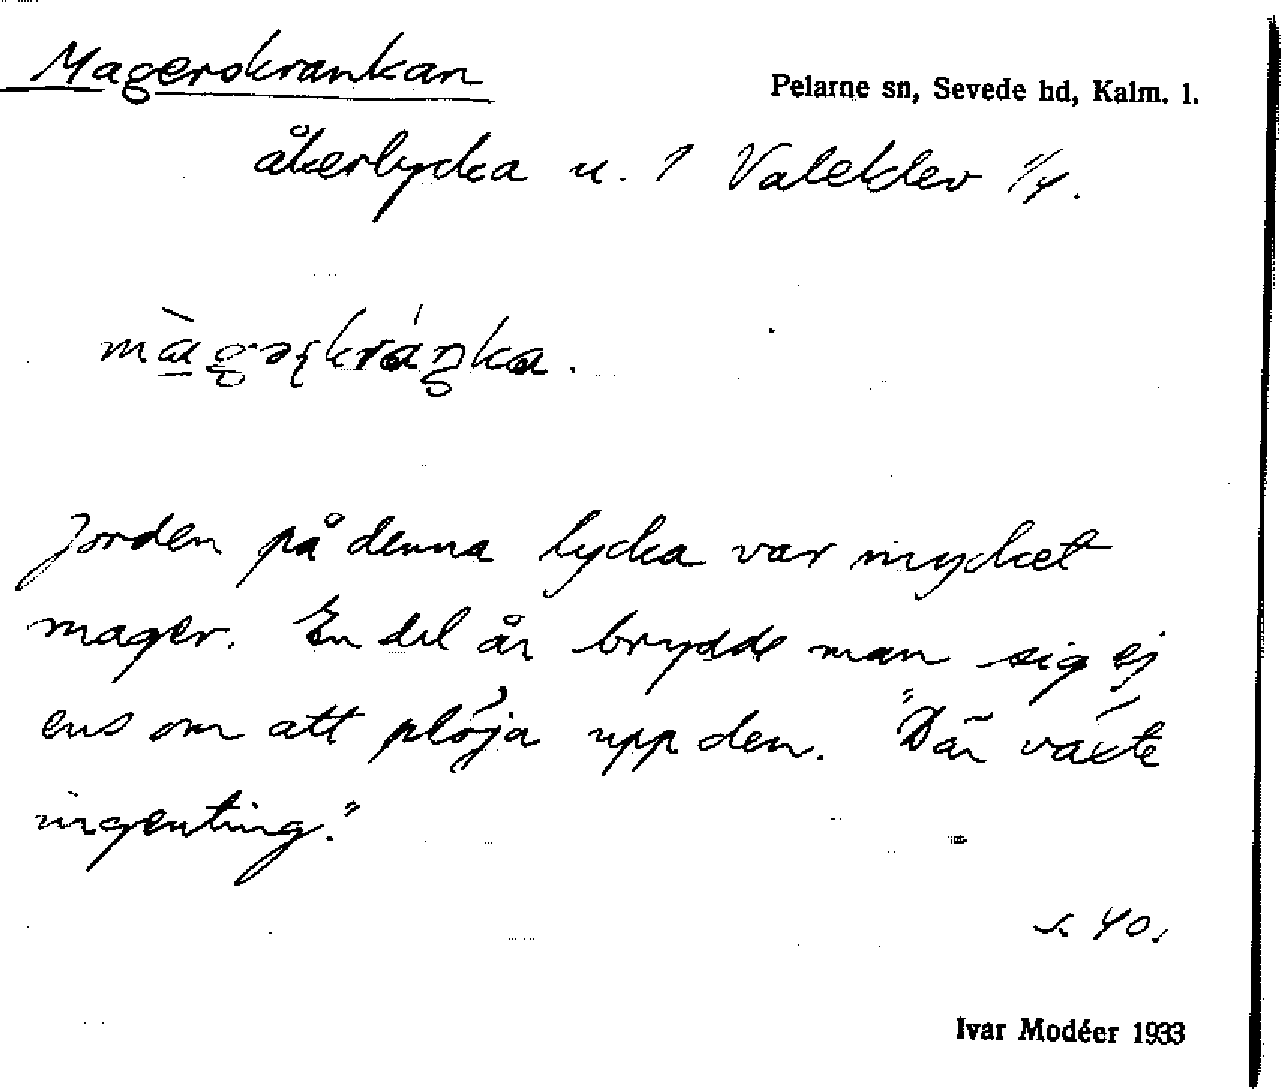 Magerskrankan
Pelarne sn, Sevede hd, Kalm. l.
åkerlycka u. 1 Valeklev 1/4.
Jorden på denna lycka var mycket
mager. En del år brydde man sig ej
ens om att plöja upp den. "Där växte
ingenting."
s. 40.
Ivar Modéer 1933